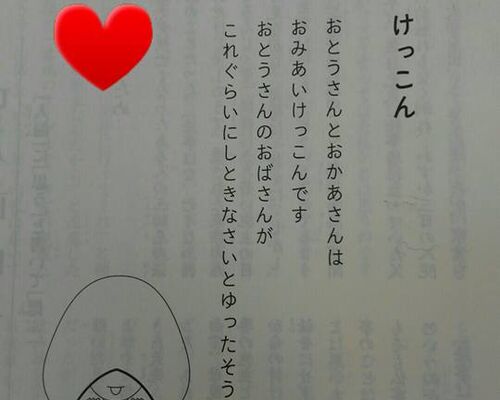 けっこん
おとうさんとおかあさんは
おみあいけっこんです
おとうさんのおばさんが
これぐらいにしときなさいとゆったそう